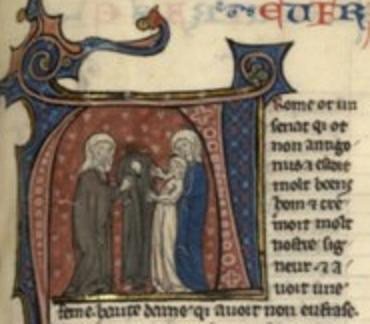 EUFR
Rome ot un
senat qi ot
non antigo
nus ⁊ estoit
molt boens
hom ⁊ cre
moit molt
nostre sig
neur ⁊ a
uoit une
feme. haute dame qi auoit non eufrase.